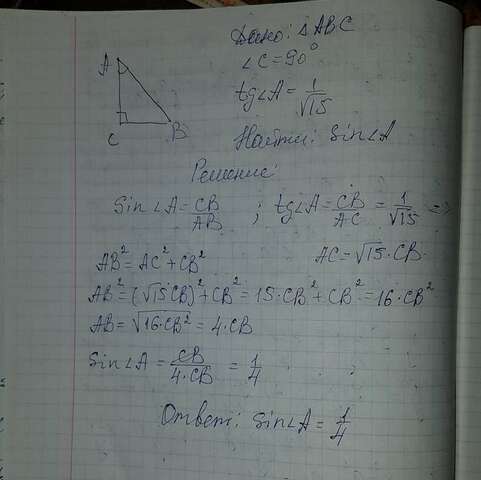 Дано: △ABC
∠C=90°
tg∠A=1/√15
A
C
B
Найти: Sin∠A
Решение:
Sin∠A=CB/AB ; tg∠A=CB/AC=1/√15 =>
AC=√15·CB
AB²=AC²+CB²
AB²=(√15CB)²+CB²=15·CB²+CB²=16·CB²
AB=√16·CB²=4·CB
Sin∠A=CB/4·CB=1/4
Ответ: Sin∠A=1/4